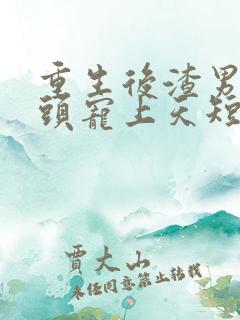 重生後渣男
頭寵上天短
賈大山
未經同意禁止轉載